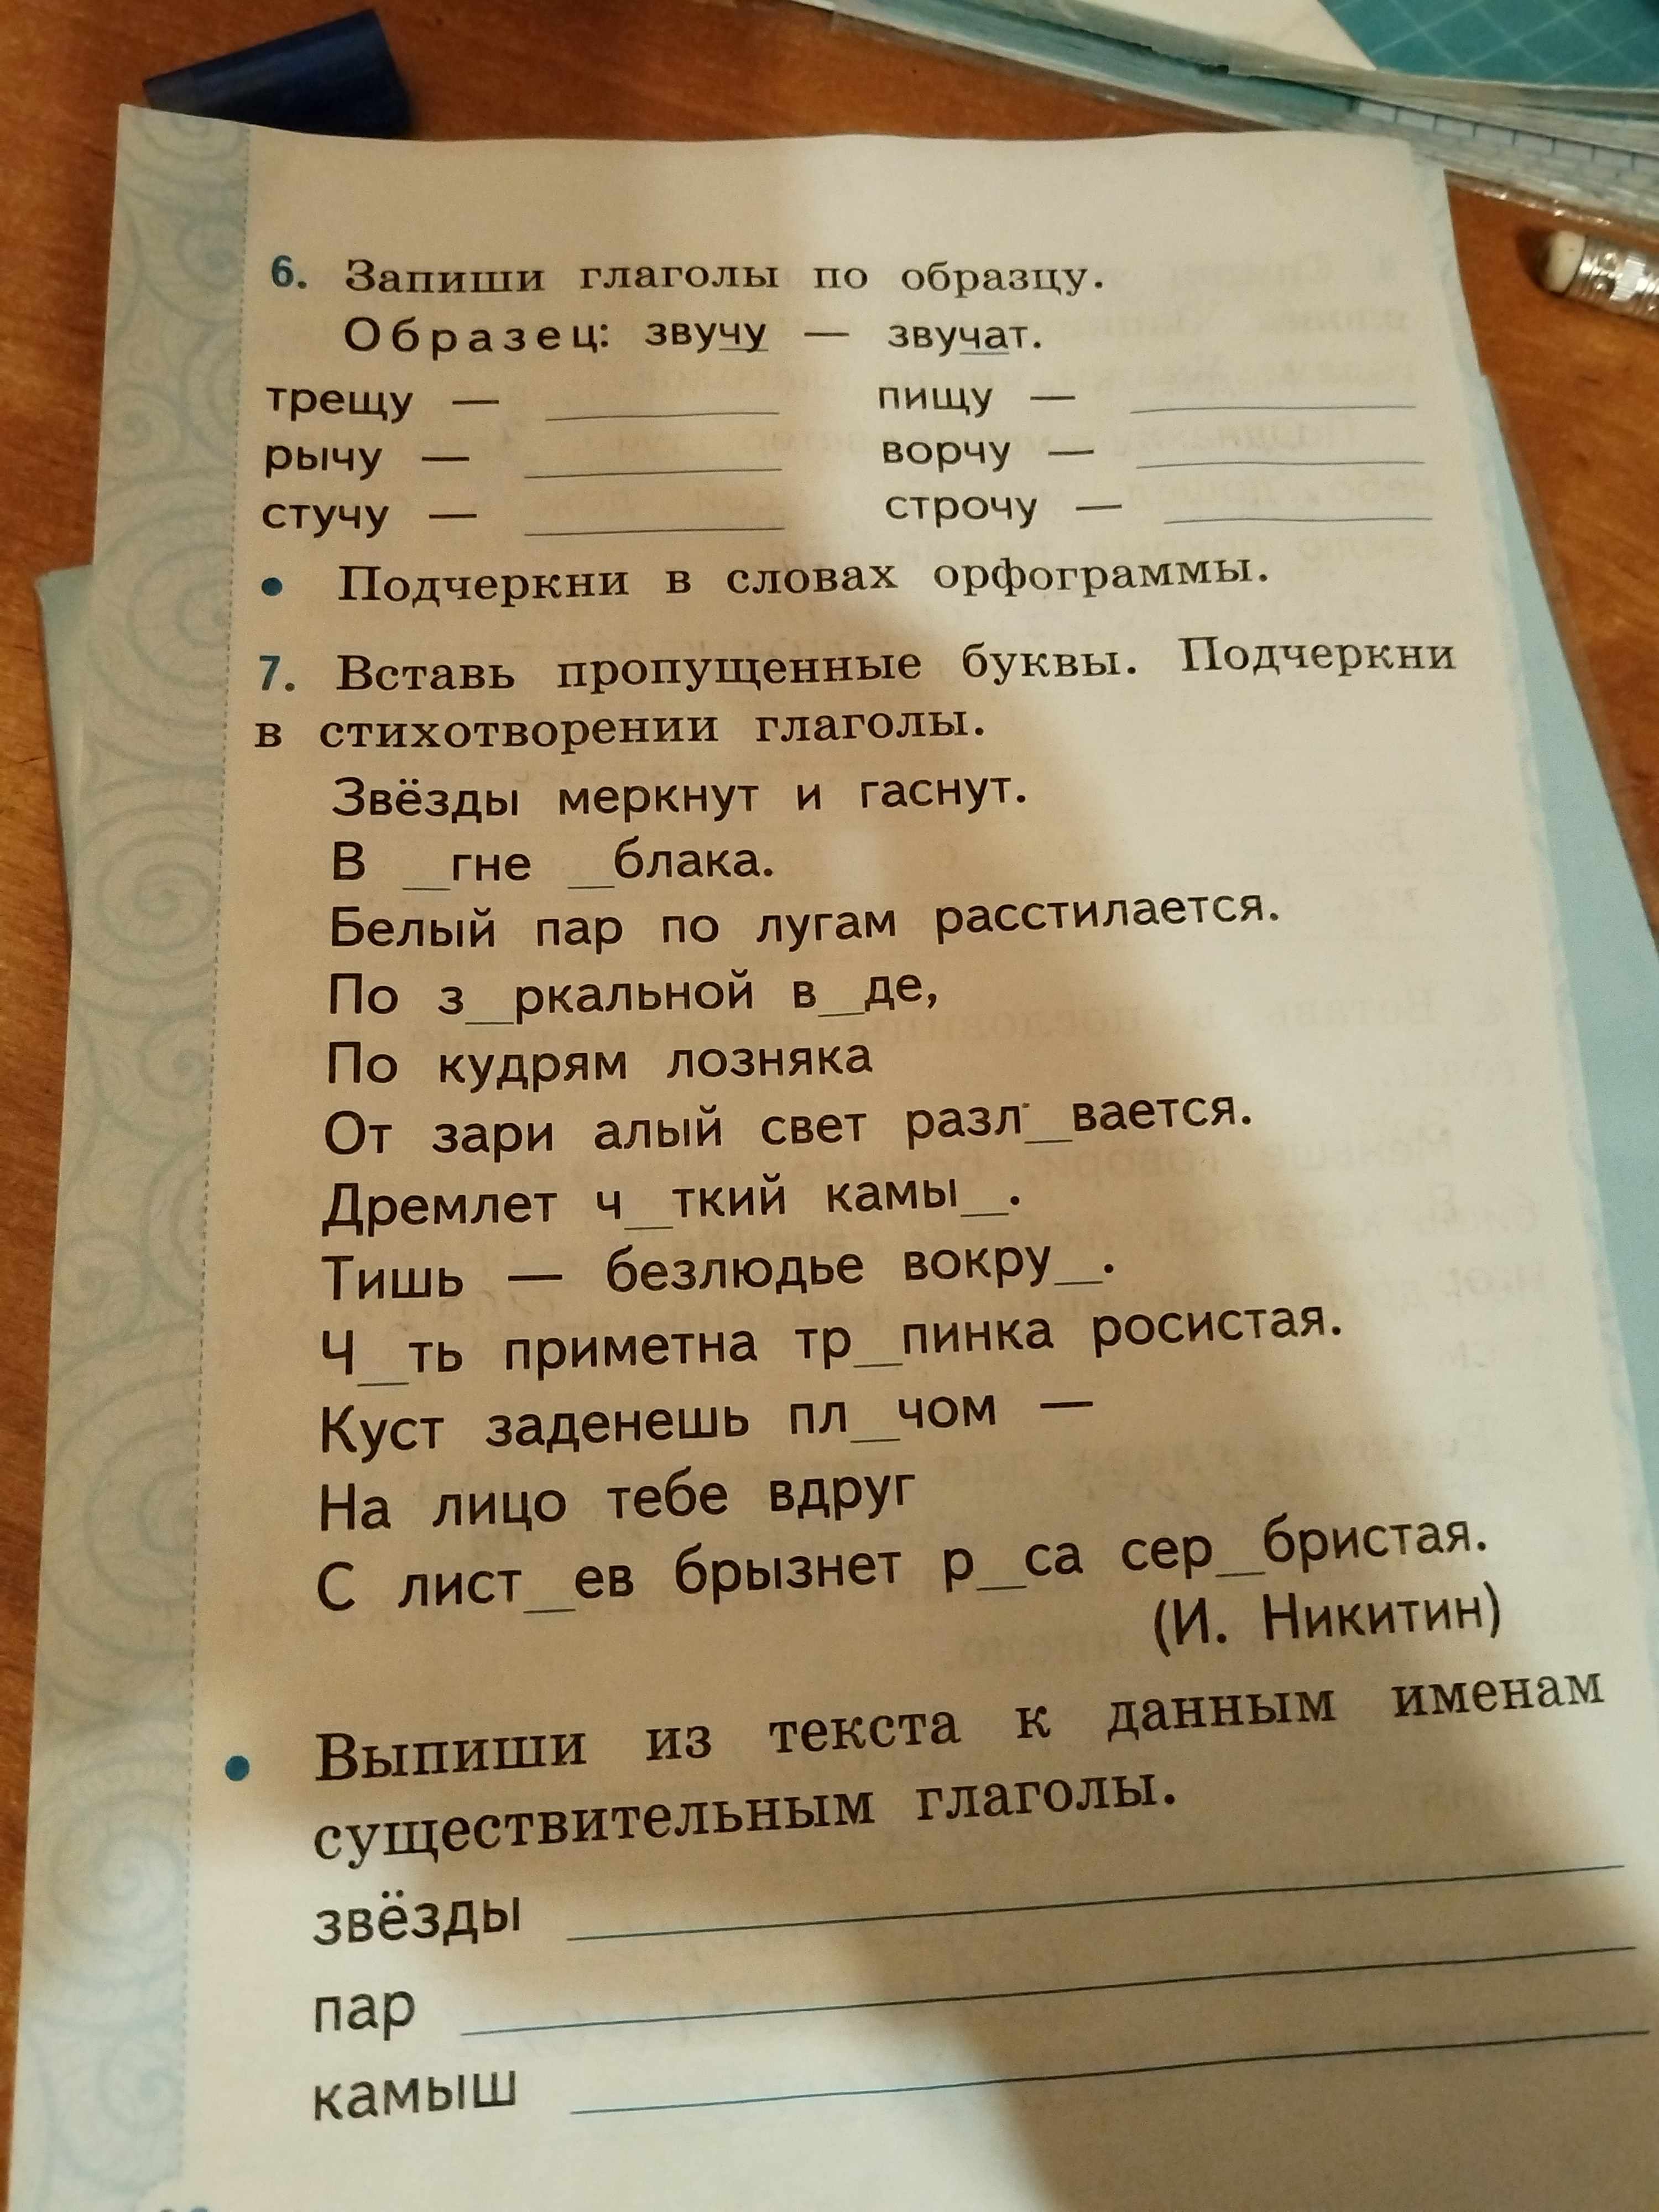 6. Запиши глаголы по образцу.
Образец: звучу — звучат.
трещу — ________ пищу — ________
рычу — ________ ворчу — ________
стучу — ________ строчу — ________
• Подчеркни в словах орфограммы.
7. Вставь пропущенные буквы. Подчеркни
в стихотворении глаголы.
Звёзды меркнут и гаснут.
В _гне _блака.
Белый пар по лугам расстилается.
По з_ркальной в_де,
По кудрям лозняка
От зари алый свет разл_вается.
Дремлет ч_ткий камы_.
Тишь — безлюдье вокру_.
Ч_ть приметна тр_пинка росистая.
Куст заденешь пл_чом —
На лицо тебе вдруг
С лист_ев брызнет р_са сер_бристая.
(И. Никитин)
• Выпиши из текста к данным именам
существительным глаголы.
звёзды ________
пар ________
камыш ________